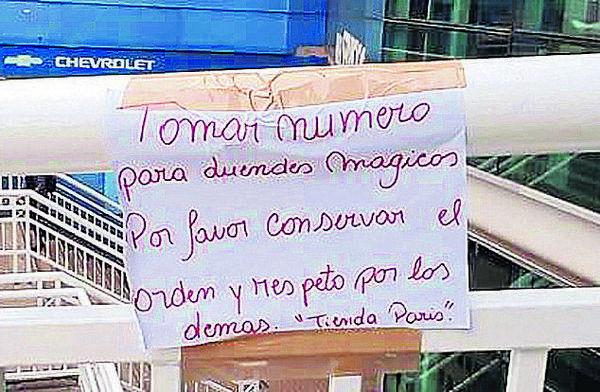 CHEVROLET
Tomar numero
para duendes magicos
Por favor conservar el
orden y respeto por los
demas. "Tienda Paris".